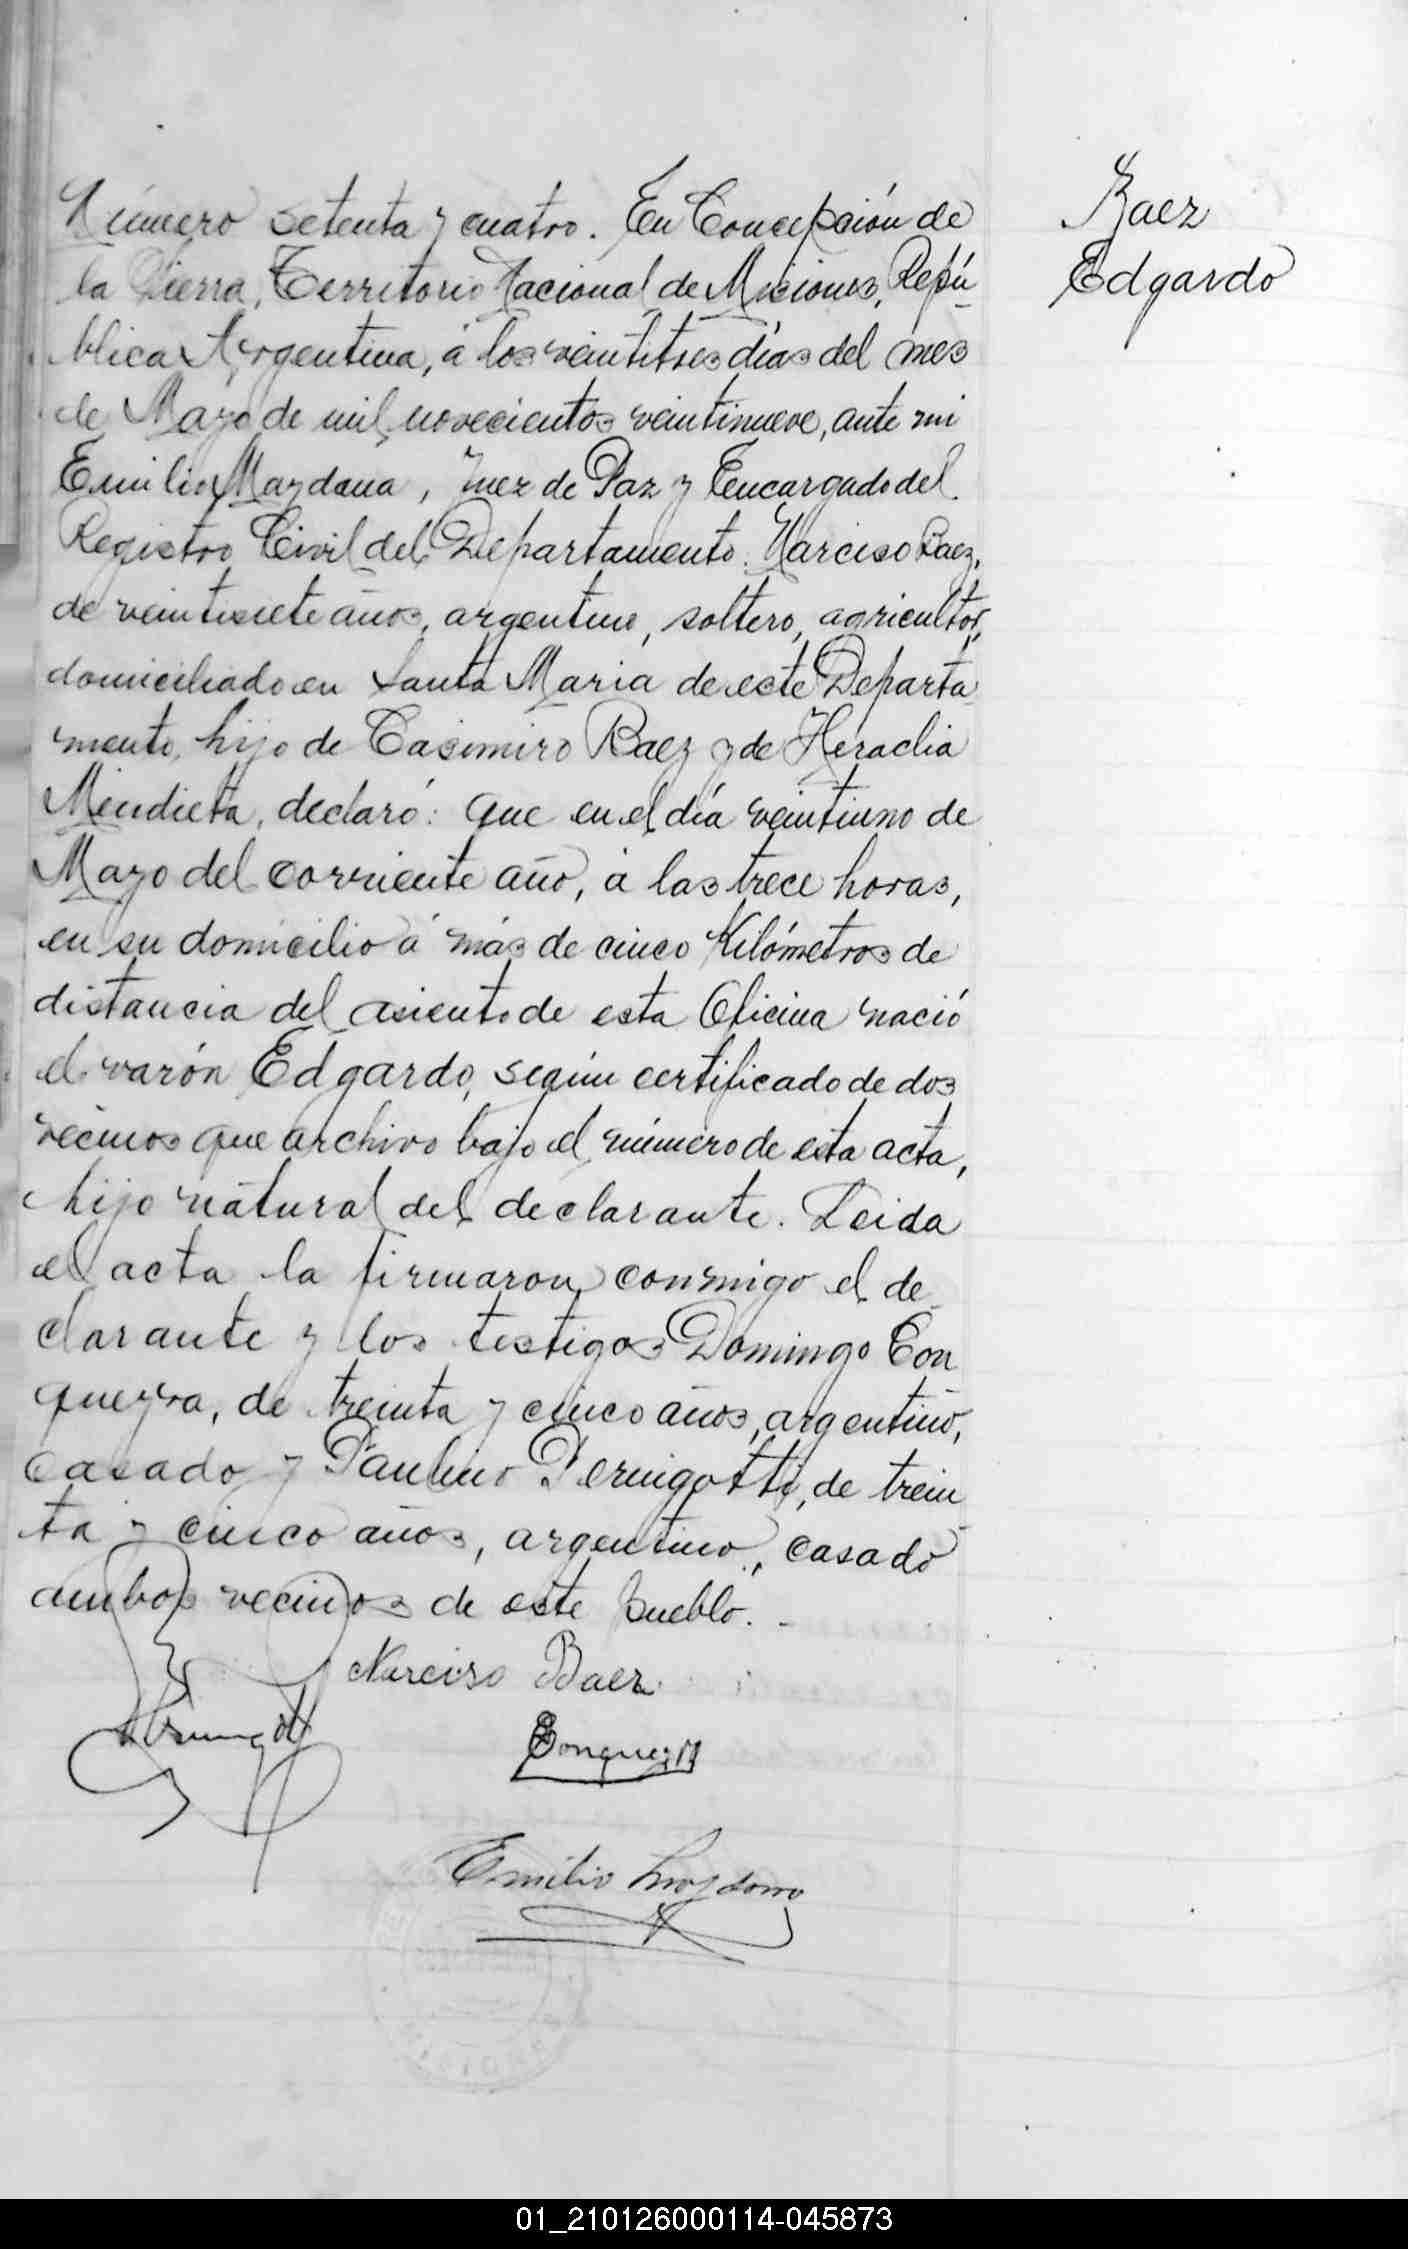 Número setenta y cuatro. En Concepción de
la Sierra, Territorio Nacional de Misiones, Repú-
blica Argentina, á los veintitres días del mes
de Mayo de mil novecientos veintinueve, ante mi
Emilio Maydana, Juez de Paz y Encargado del
Registro Civil del Departamento. Narciso Baez,
de veintisiete años, argentino, soltero, agricultor,
domiciliado en Santa Maria de este Departa-
mento, hijo de Casimiro Baez y de Heraclia
Mendieta, declaró: que en el día veintiuno de
Mayo del corriente año, á las trece horas,
en su domicilio á más de cinco Kilómetros de
distancia del asiento de esta Oficina nació
el varón Edgardo, según certificado de dos
vecinos que archivo bajo el número de esta acta,
hijo natural del declarante. Leida
el acta la firmaron conmigo el de-
clarante y los testigos Domingo Con
queyra, de treinta y cinco años, argentino,
casado y Paulino Pernigotti, de trein-
ta y cinco años, argentino, casado
ambos vecinos de este pueblo. -
Narciso Baez
Emilio Maydana
Baez
Edgardo
01_210126000114-045873